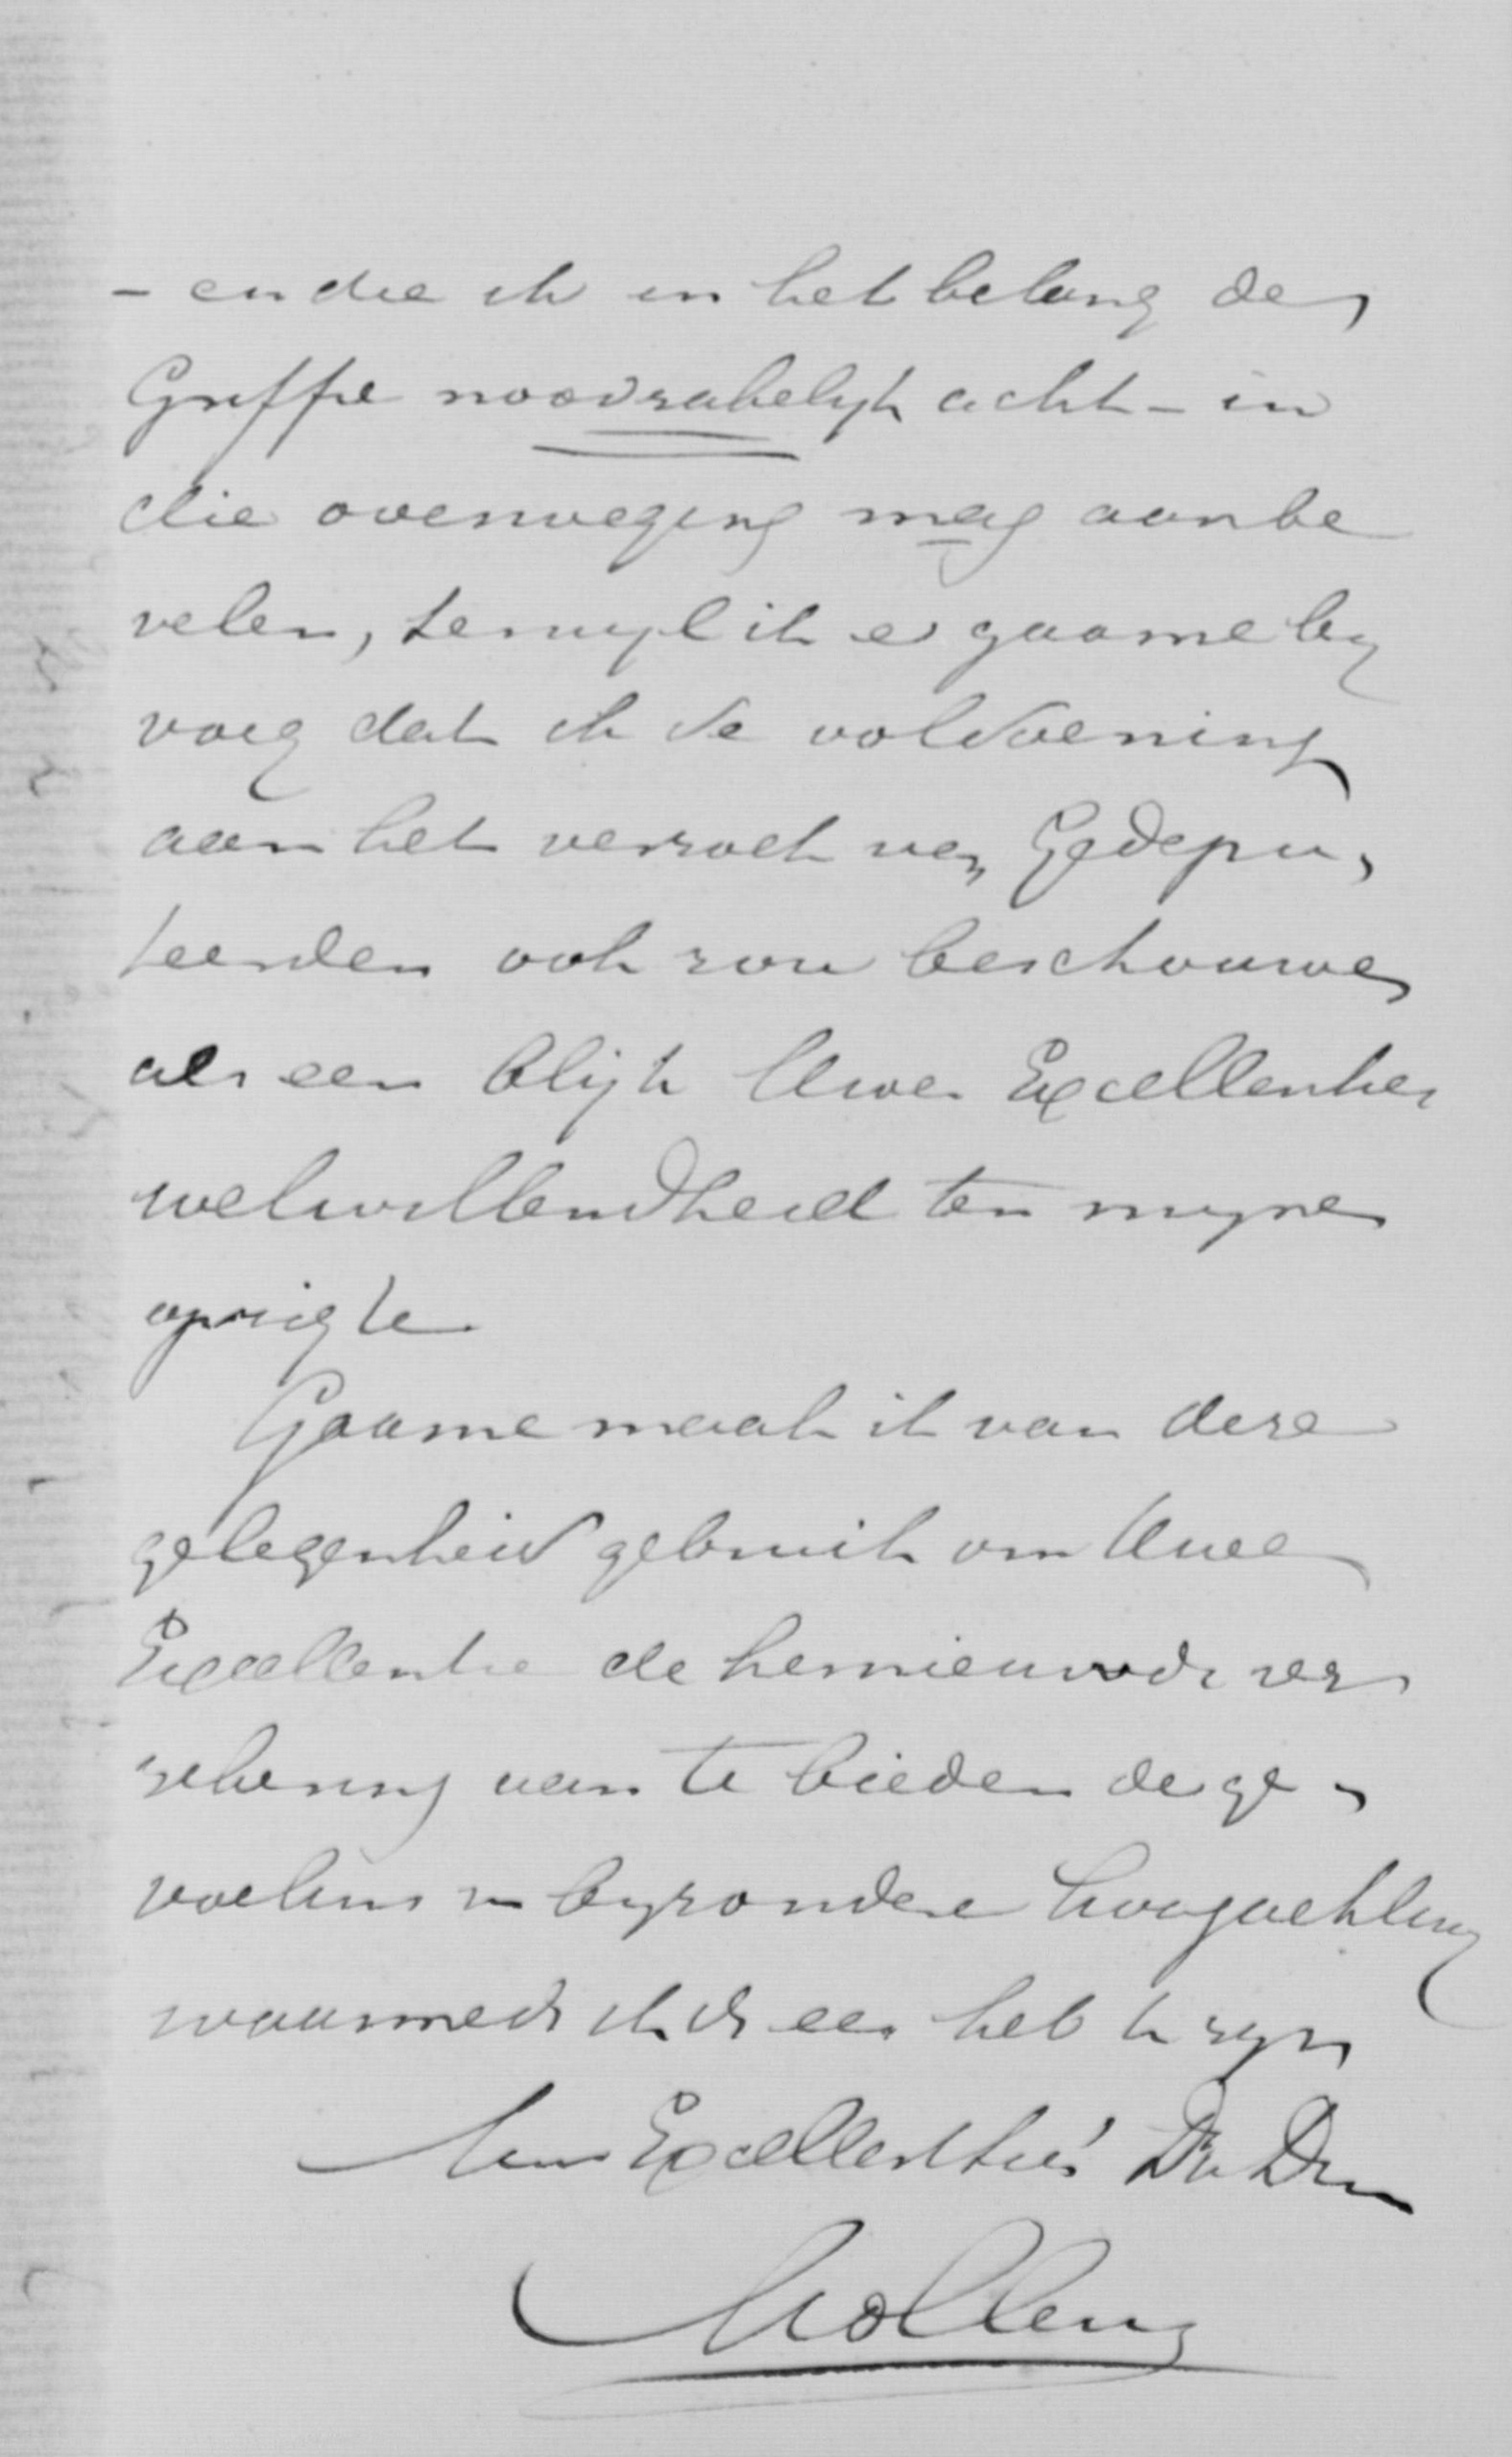 - en die ik in het belang der
Griffie noodzakelijk acht - in
die overweging mag aanbe
velen, terwijl ik er gaarne bij
voeg dat ik de voldoening
aan het verzoek van Gedepu,
teerden ook zou beschouwen
als een blijk Uwer Excellenties
welwillendheid ten mijnen
opzigte.
Gaarne maak ik van deze
gelegenheid gebruik om Uwe
Excellentie de hernieuwde ver
zekering aan te bieden der ge,
voelens van bijzondere hoogachting
waarmede ik de eer heb te zijn
Uwer Excellentie's Dw Dnr